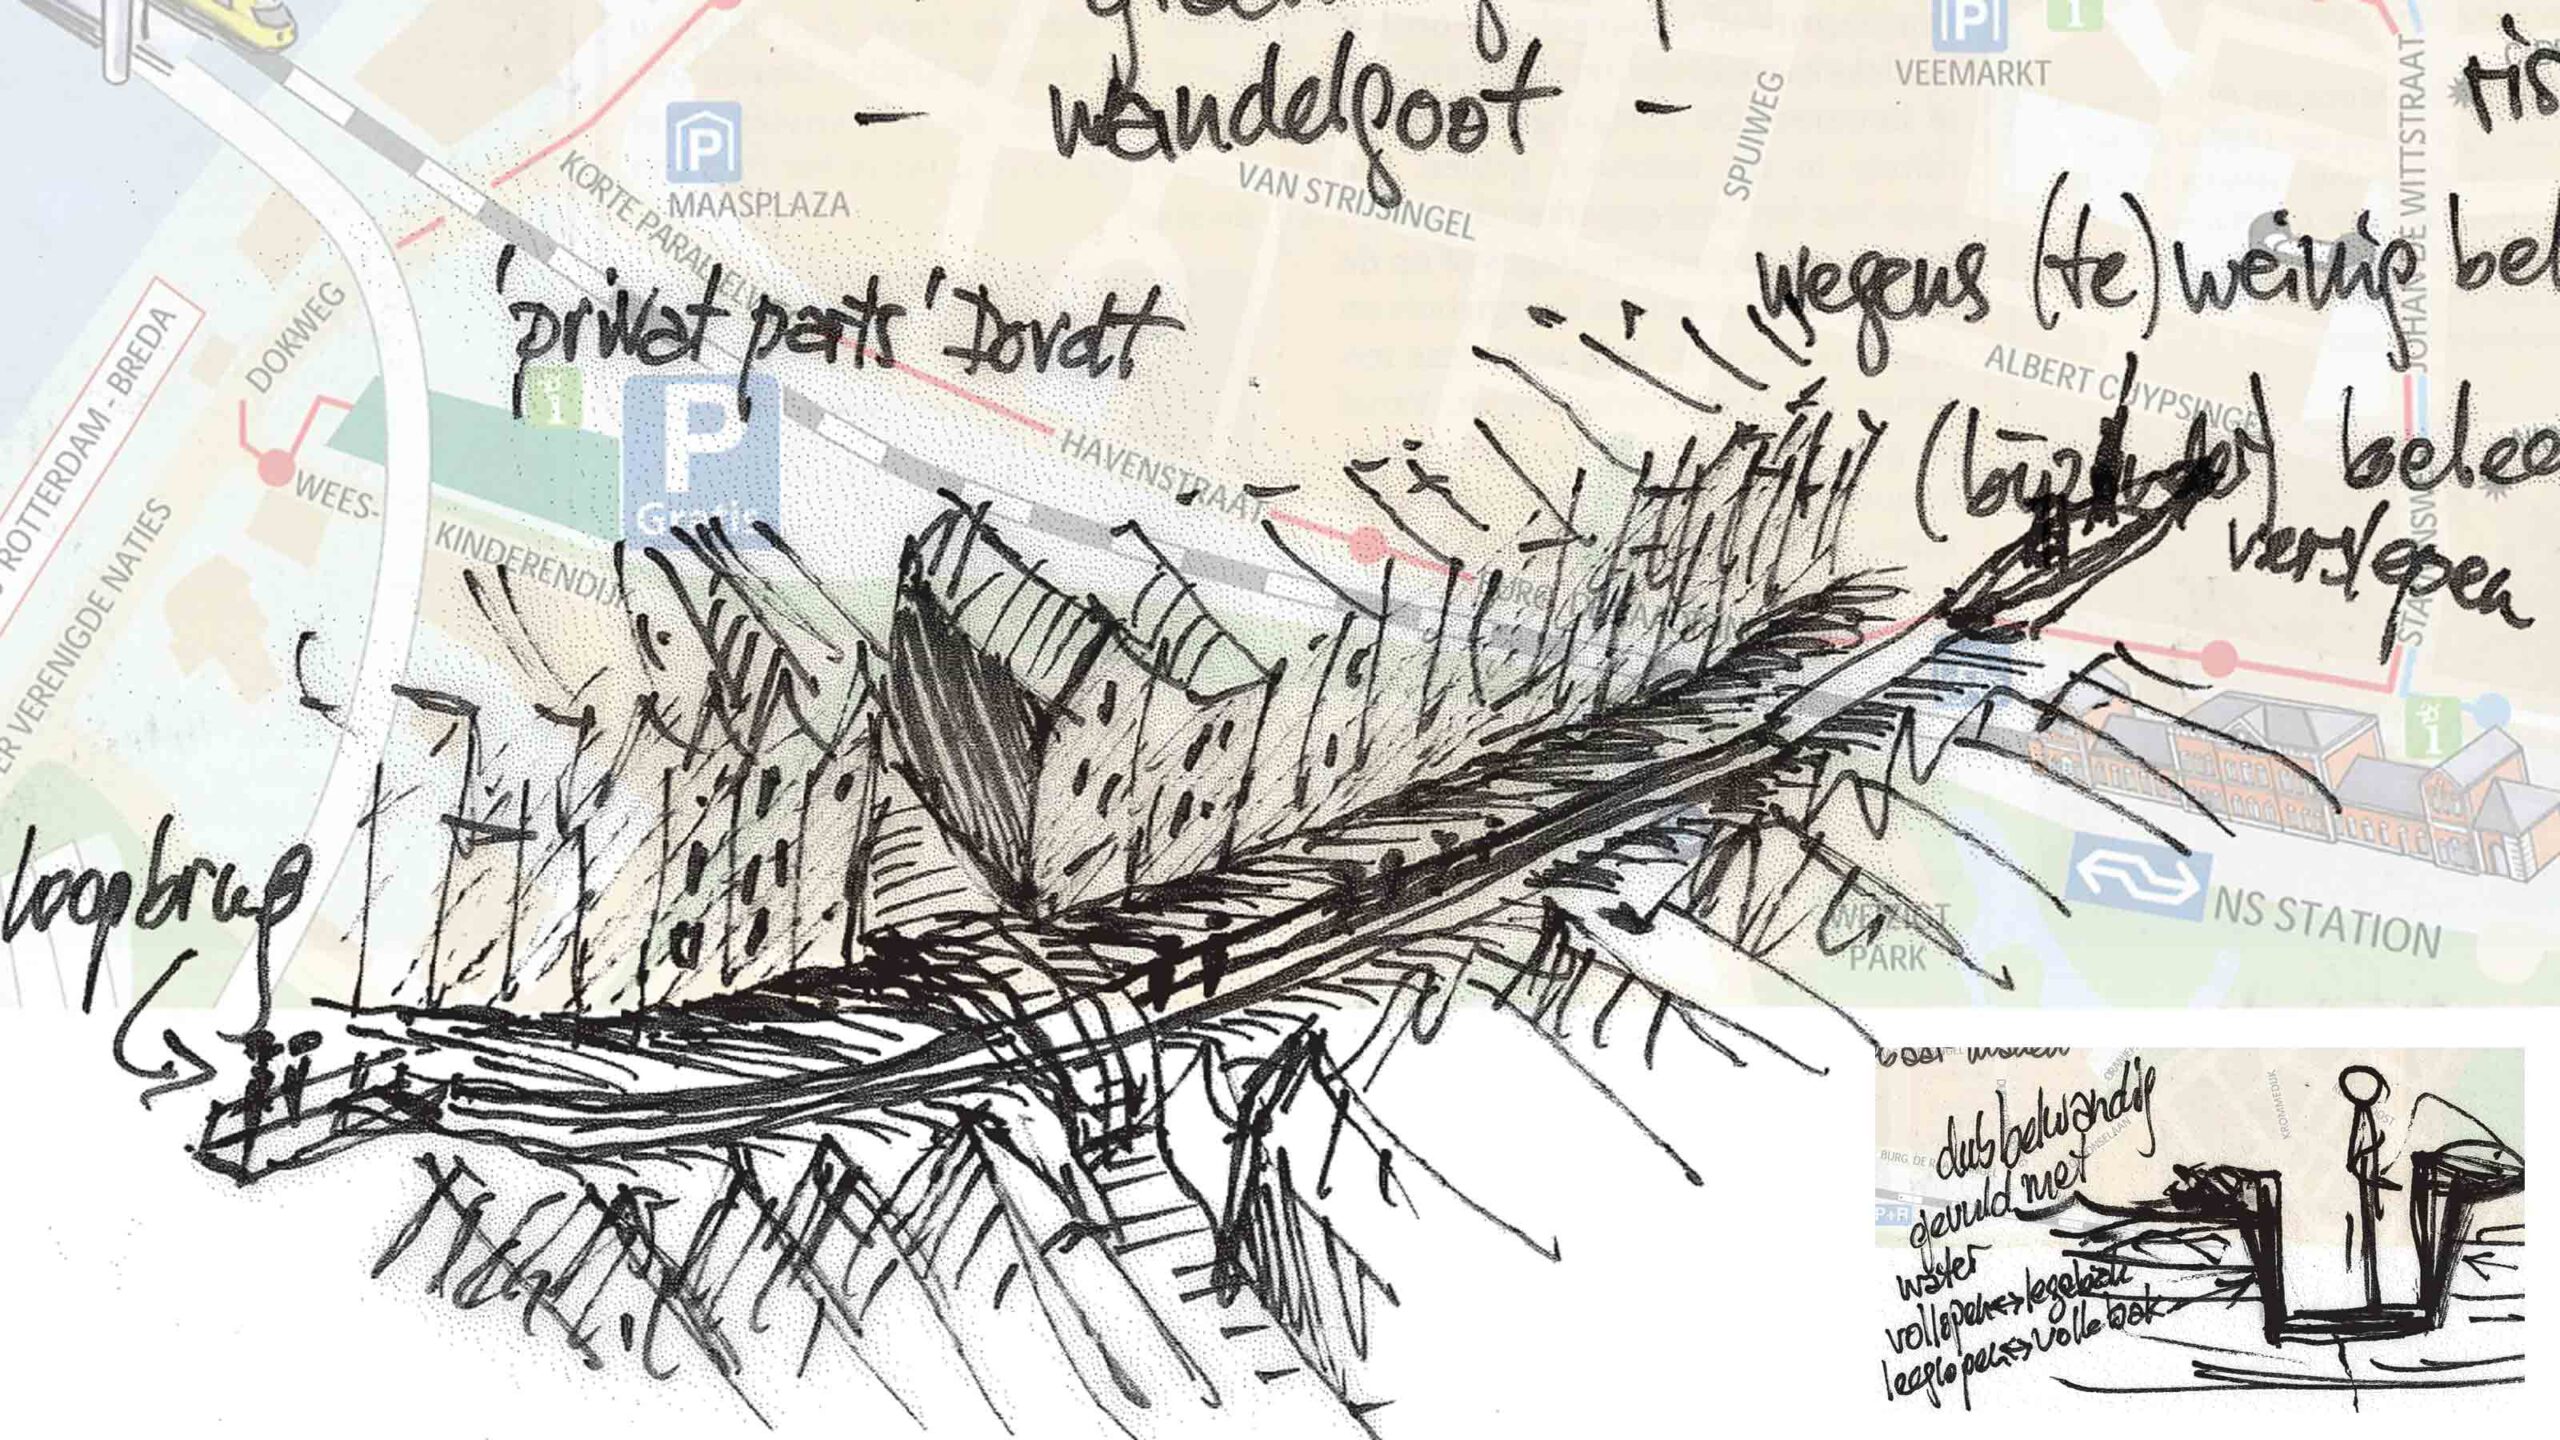 - wandelgoot -
ris
VEEMARKT
P
MAASPLAZA
KORTE PARALLELWEG
VAN STRIJSINGEL
SPUIWEG
JOHAN DE WITTSTRAAT
wegens (te) weinig bel
'privat parts' Dordt
ROTTERDAM - BREDA
DOKWEG
ALBERT CUYPSINGEL
(bijzonder) belee
verslepen
P
Gratis
HAVENSTRAAT
WEES-
KINDERENDIJK
ER VERENIGDE NATIES
loopbrug
NS STATION
WEIZIGT
PARK
dubbelwandig
gevuld met
water
vollopen<->lege bak
leeglopen<->volle bak
KROMMEDIJK
BURG. DE R
P+R